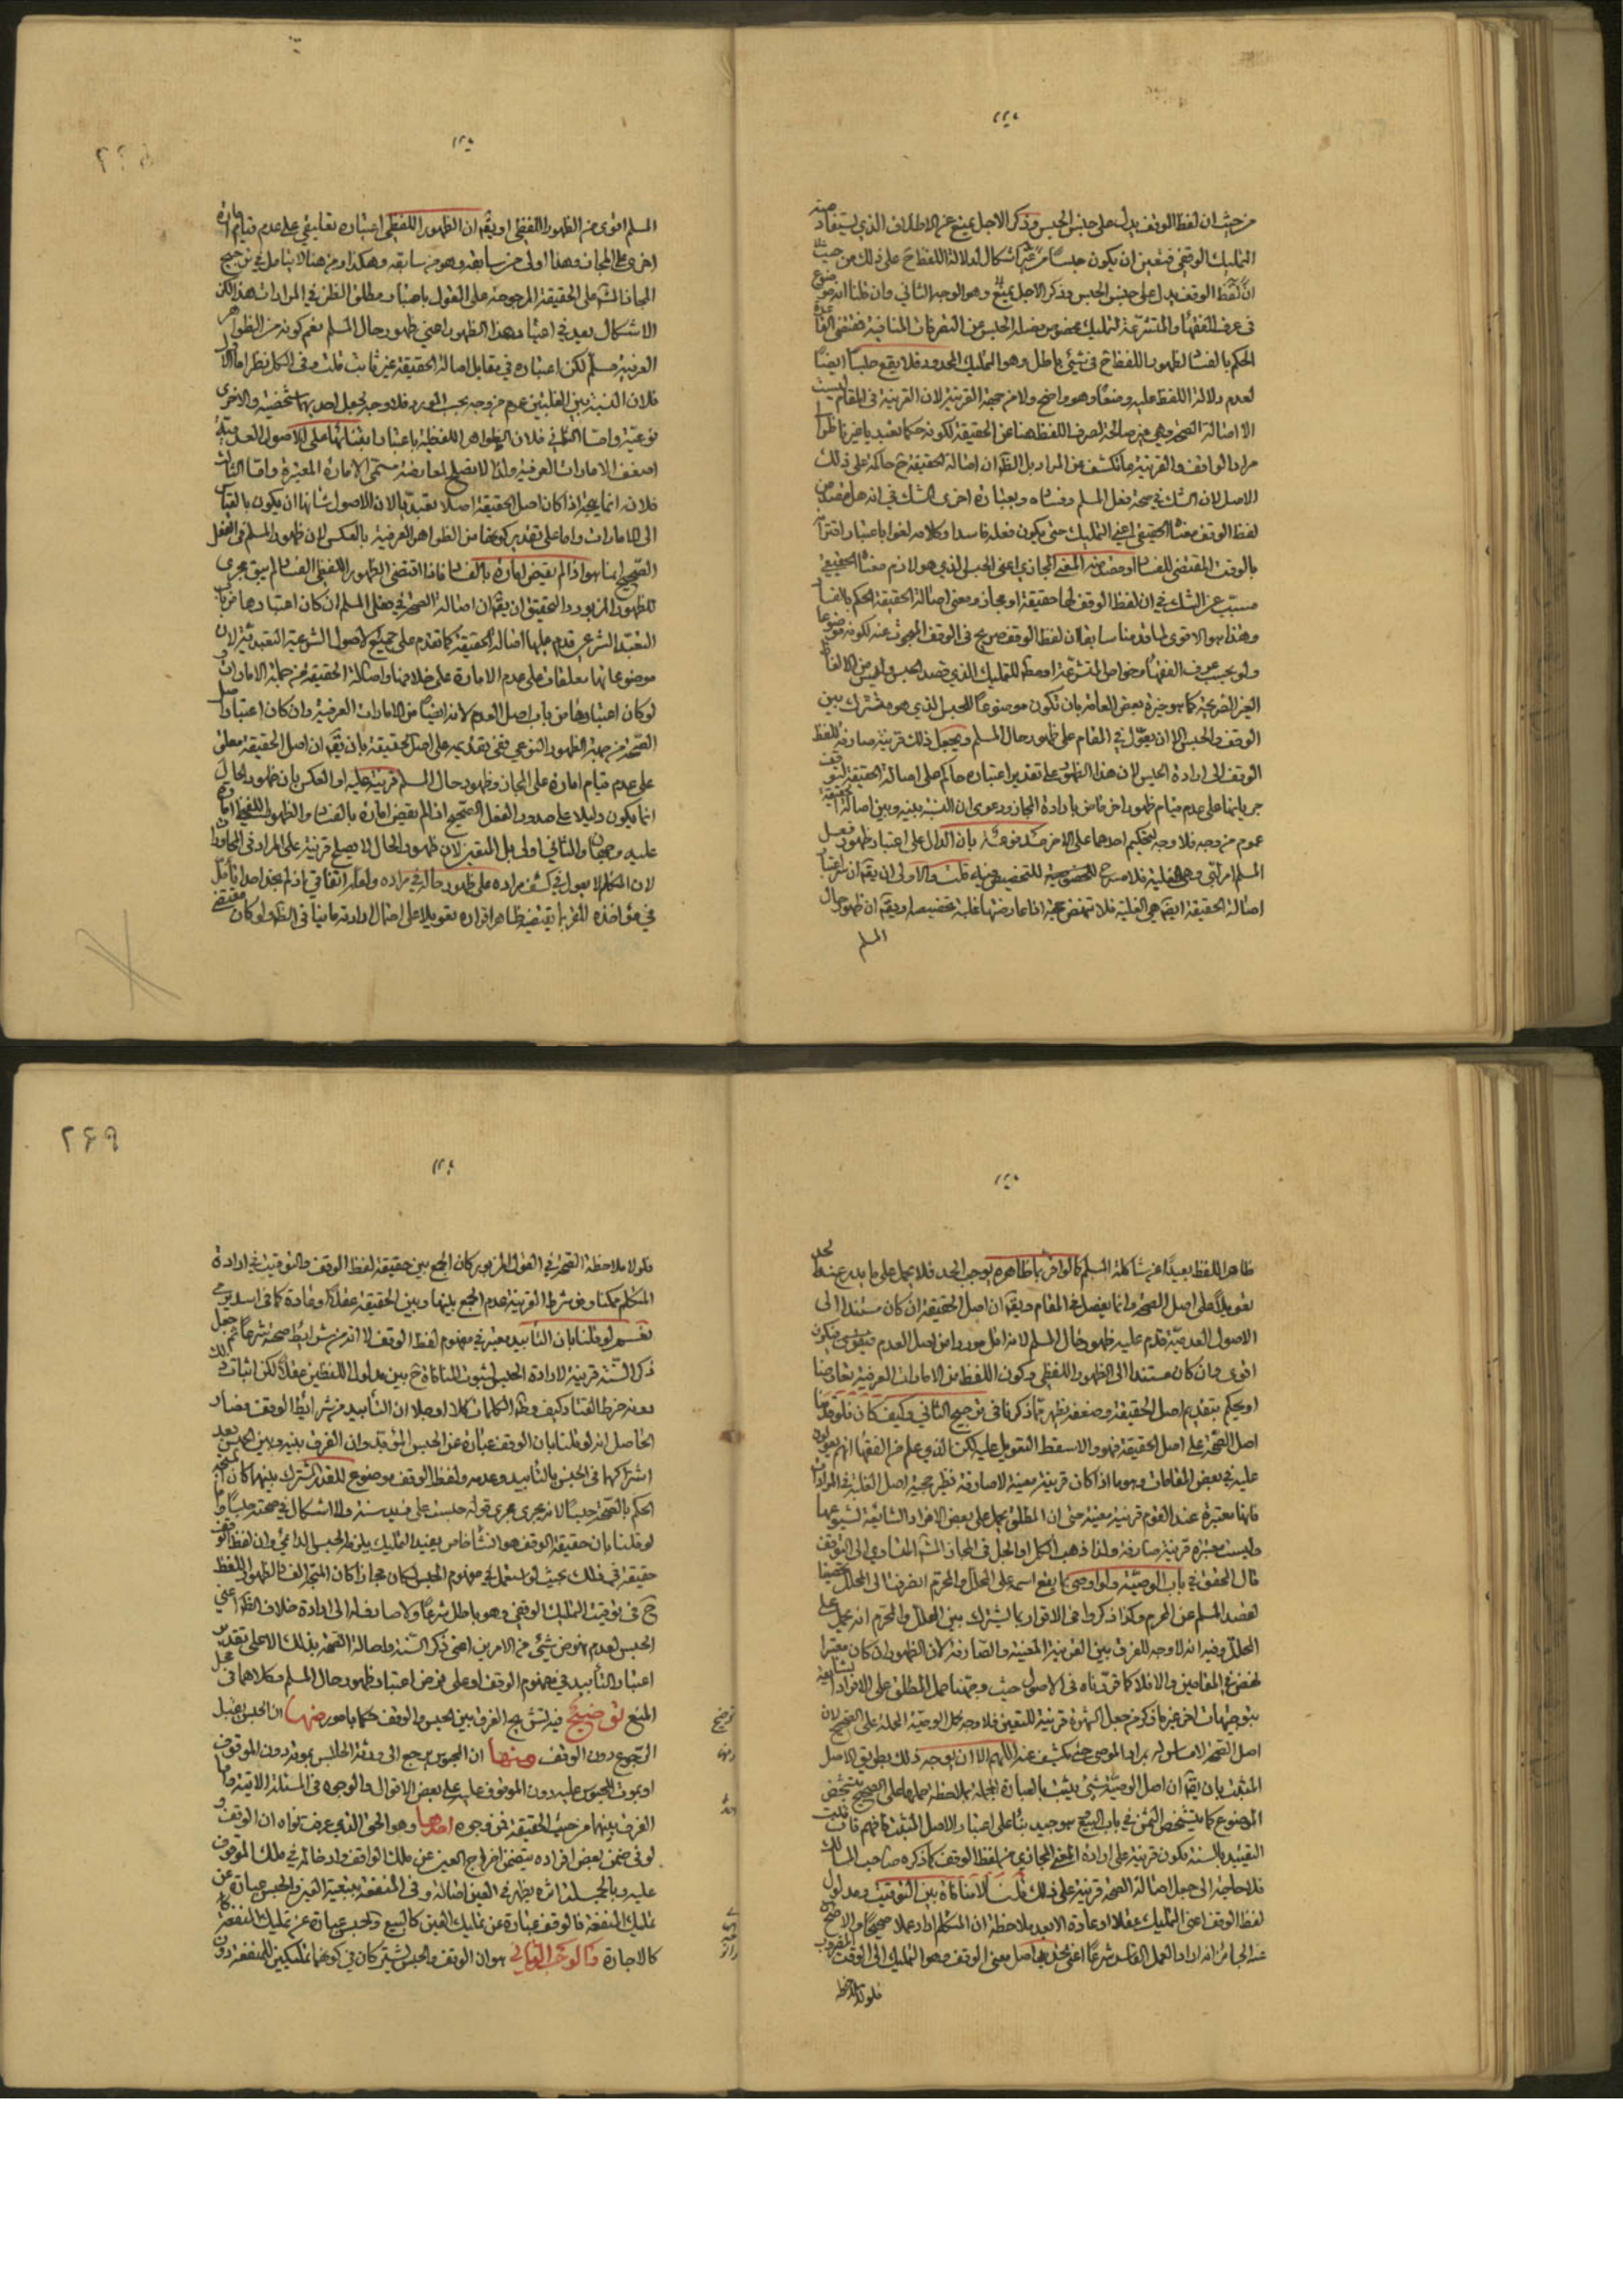 من حيث ان لفظ الوقف يدل على جنس الحبس وذكر الاجل يمنع عن الاطلاق الذي يستفاد منه
التمليك الوقفي فتعين ان يكون حبسا من غير اشكال لدلالة اللفظ ح على ذلك من حيث
ان لفظ الوقف يدل على جنس الحبس وذكر الاجل يمنع وهو الوجه الثاني وان قلنا انه موضوع
في عرف الفقهاء والمتشرعة لتمليك مخصوص يفضله الحبس عن التصرفات المنافية فمقتضى القاعدة
الحكم بالفساد لظهور اللفظ ح في شئ باطل وهو التمليك المحدود فلا يقع حبسا ايضا
لعدم دلالة اللفظ عليه وضعا وهو واضح ولا من جهة القرينة لان القرينة في المقام ليست
الا اصالة الصحة وهي غير صالحة لصرف اللفظ هنا عن الحقيقة لكونه حكما تعبديا غير ناظر الى
مراد الواقف والقرينة ما تكشف عن المراد بل الظ ان اصالة الحقيقة ح حاكمة على ذلك
الاصل لان الشك في صحة فعل المسلم وفساده وبعبارة اخرى الشك في انه هل قصد من
لفظ الوقف معناه الحقيقي اعني التمليك حتى يكون فعله فاسدا وكلامه لغوا باعتبار اقترانه
بالوقت المقتضي للفساد او قصد منه المعنى المجازي اعني الحبس الذي هو لازم معناه الحقيقي
مسبب عن الشك في ان لفظ الوقف لها حقيقة او مجاز ومعنى اصالة الحقيقة الحكم بالفساد
وهذا هو الاقوى لما قدمنا سابقا ان لفظ الوقف صريح في الوقف المبحوث عنه لكونه موضوعا
ولو بحسب عرف الفقهاء وخواص المتشرعة او مطلقا للتمليك الذي قصد الحبس وليس من الالفاظ
الغير الصريحة كما هو خيرة بعض العامة بان تكون موضوعا للحبس الذي هو مشترك بين
الوقف والحبس الا ان يعول في المقام على ظهور حال المسلم ويجعل ذلك قرينة صارفة للفظ
الوقف الى ارادة الحبس لان هذا الظهور على تقدير اعتباره حاكم على اصالة الحقيقة لتوقف
جريانها على عدم قيام ظهور اخر قاض بارادة المجاز ودعوى ان النسبة بينه وبين اصالة الحقيقة
عموم من وجه فلا وجه لتحكيم احدهما على الاخر مدفوعة بان الدال على اعتبار ظهور فعل
المسلم
اصالة الحقيقة ايضا هي الغلبة فلا تنهض حجة اذا عارضتها غلبة تخصيصا ويق ان ظهور حال
المسلم
المسلم اقوى من الظهور اللفظي او يق ان الظهور اللفظي اعتباره تعليقي على عدم قيام امارة
اخرى على المجاز وهذا اولى من سابقه وهو من سابقه وهكذا ومن هنا لا يتامل في ترجيح
المجاز المشهور على الحقيقة المرجوحة على القول باعتبار مطلق الظن في المرادات هذا لكن
الاشكال بعد في اعتبار هذا الظهور اعني ظهور حال المسلم نعم كونه من الظواهر
العرفية مسلم لكن اعتباره في مقابل اصالة الحقيقة غير ثابت قلت وفي الكل نظر اما الاول
فلان النسبة بين الغلبتين عموم من وجه بحسب المورد فلا وجه لجعل احدهما شخصية والاخرى
نوعية واما الثاني فلان الظواهر اللفظية باعتبار ابتنائها على الاصول العدمية
اضعف الامارات العرفية ولذا لا تصلح لمعارضة مسمى الامارة المعتبرة واما الثالث
فلانه انما يتجه اذا كان اصل الحقيقة اصلا تعبديا لان الاصول شانها ان يكون بالقياس
الى الامارات واما على تقدير كونها من الظواهر العرفية بالعكس لان ظهور المسلم في الفعل
الصحيح انما هو اذا لم يقتض امارة بالفساد فاذا اقتضى الظهور اللفظي الفساد لم يبق مجرى
للظهور المزبور والتحقيق ان يق ان اصالة الصحة في فعل المسلم ان كان اعتبارها من باب
التعبد الشرعي قدم عليها اصالة الحقيقة كما تقدم على جميع الاصول الشرعية التعبدية لان
موضوعاتها معلقات على عدم الامارة على خلافها واصالة الحقيقة من جملة الامارات
لو كان اعتبارها من باب اصل العدم لانه ايضا من الامارات العرفية وان كان اعتبار اصل
الصحة من جهة الظهور النوعي ففي تقديمه على اصل الحقيقة بان يق ان اصل الحقيقة معلق
على عدم قيام امارة على المجاز وظهور حال المسلم قرينة عليه او العكس بان ظهور الحال
انما يكون دليلا على صدور الفعل الصحيح اذا لم يقض امارة بالفساد والظهور اللفظي امارة
عليه وجهان والثاني اولى بل المتعين لان ظهور الحال لا يصلح قرينة على المراد في المحاورات
لان المتكلم لا يعول في كشف مراده على ظهور حاله في مراده ولعله اتفاقي اذ لم نجد احدا تأمل
في مؤاخذة المقر بما يقتضيه ظاهر اقراره تعويلا على احتمال ارادته ما ينافي الظ ولو كان مقتضى
ظاهر اللفظ بعيدا عن شاكلة المسلم كالواقر بما ظاهره يوجب الحد فلا يحمل على ما يدرء عنه الحد
تعويلا على اصل الصحة وانما يفصل في المقام ويق ان اصل الحقيقة ان كان مستندا الى
الاصول العدمية قدم عليه ظهور حال المسلم لانه اقل موردا من اصل العدم فيكون
اقوى وان كان مستندا الى الظهور اللفظي وكون اللفظ من الامارات العرفية تعارضا
او يحكم بتقديم اصل الحقيقة وضعفه يظهر مما ذكرنا في ترجيح الثاني وكيف كان فلو قدمنا
اصل الصحة على اصل الحقيقة فهو والا سقط التعويل عليه لكن الذي علم من الفقهاء انهم يعولون
عليه في بعض المقامات وهو ما اذا كان قرينة معينة لا صارفة نظير حجية اصل الغلبة في المرادات
فانها معتبرة عند القوم قرينة معينة حتى ان المطلق يحمل على بعض الافراد الشائعة لشيوعها
وليست معتبرة قرينة صارفة ولذا ذهب الكل او الجل في المجاز المشهور المساوي الى التوقف
قال المحقق في باب الوصية ولو اوصى بما يقع اسمه على المحلل والمحرم انصرف الى المحلل تحصينا
لقصد المسلم عن المحرم وكذا ذكروا في الاقرار بما يشترك بين المحلل والمحرم انه يحمل على
المحلل وفيه انه لا وجه للفرق بين القرينة المعينة والصارفة لان الظهور ان كان معتبرا
نهض في المقامين والا فلا كما قررناه في الاصول حيث وجهنا حمل المطلق على الافراد الشايعة
بتوجيهات اخر غير ما ذكر من جعل الشهرة قرينة للتعيين فلا وجه لحمل الوصية المجملة على الصحيح لان
اصل الصحة لا مساس له بمراد الموصي حتى يكشف عنه اللهم الا ان يوجه ذلك بطريق الاصل
المثبت بان يق ان اصل الوصية شئ يثبت بالعبارة المجملة بملاحظة حملها على الصحيح يتشخص
الموضوع كما يتشخص الثمن في باب البيع هو جيد بناء على اعتبار الاصل المثبت فافهم فان قلت
التقييد بالسنة يكون قرينة على ارادة المعنى المجازي من لفظ الوقف كما ذكره صاحب المسالك
فلا حاجة الى جعل اصالة الصحة قرينة على ذلك قلت لا منافاة بين التوقيت ومدلول
لفظ الوقف اعني التمليك عقلا او عادة الا بعد ملاحظة ان المتكلم اراد عملا صحيحا والا فيحتمل
عند الجاهل انه اراد العمل الفاسد شرعا اعني اصل معنى الوقف وهو التمليك الى الوقت المضروب
فلولا ملاحظة
فلولا ملاحظة الصحة في القول المزبور كان الجمع بين حقيقة لفظ الوقف والتوقيت في ارادة
المتكلم ممكنا ومن شرط القرينة عدم الجمع بينها وبين الحقيقة عقلا او عادة كما في اسد يرمي
نعم لو قلنا بان التأبيد معتبر في مفهوم لفظ الوقف لا انه من شرايط صحته شرعا تم جعل
ذكر السنة قرينة لارادة الحبس لثبوت المنافاة ح بين مدلول اللفظين عقلا لكن اثبات ذلك
دونه خرط القتاد كيف وظ الكلمات كلا او جلا ان التأبيد من شرائط الوقف فصار
الحاصل انه لو قلنا بان الوقف عبارة عن الحبس المؤبد وان الفرق بينه وبين الحبس بعد
اشتراكهما في الحبس بالتأبيد وعدمه ولفظ الوقف موضوع للقدر المشترك بينهما كان المتجه
الحكم بالصحة حبسا لانه يجري مجرى قوله حبست على فيد سنة ولا اشكال في صحته حبسا واما
لو قلنا بان حقيقة الوقف هو انشاء خاص يفيد التمليك يلزمه الحبس الدائمي وان لفظ الوقف
حقيقة في ذلك بحيث لو استعمل في مفهوم الحبس لكان مجازا كان المتجه الفساد لظهور اللفظ
ح في توقيت التمليك الوقفي وهو باطل شرعا ولا صارف له الى ارادة خلاف الظ اعني
الحبس لعدم نهوض شئ من الامرين اعني ذكر السنة واصالة الصحة بذلك الا على تقدير
اعتبار التأبيد في مفهوم الوقف او على فرض اعتبار ظهور حال المسلم وكلاهما في محل
المنع توضيح فيه نشرح الفرق بين الحبس والوقف حكما بامور منها ان الحبس يقبل
الرجوع دون الوقف ومنها ان المحبوس يرجع الى ورثة الحابس بموته دون الموقوف
او بموت المحبوس عليه دون الموقوف عليه على بعض الاقوال والوجوه في المسئلة الاتية واما
الفرق بينهما من حيث الحقيقة فمن وجوه احدها وهو الحق الذي عرفت قواه ان الوقف و
لو في ضمن بعض افراده يتضمن اخراج العين عن ملك الواقف وادخاله في ملك الموقوف
عليه وبالجملة اثره يظهر في العين اصالة وفي المنفعة بتبعية العين والحبس عبارة عن
تمليك المنفعة فالوقف عبارة عن تمليك العين كالبيع والحبس عبارة عن تمليك المنفعة
كالاجارة والوجه الثاني هو ان الوقف والحبس يشتركان في كونهما تمليكين للمنفعة دون
توضيح
٢۶٩